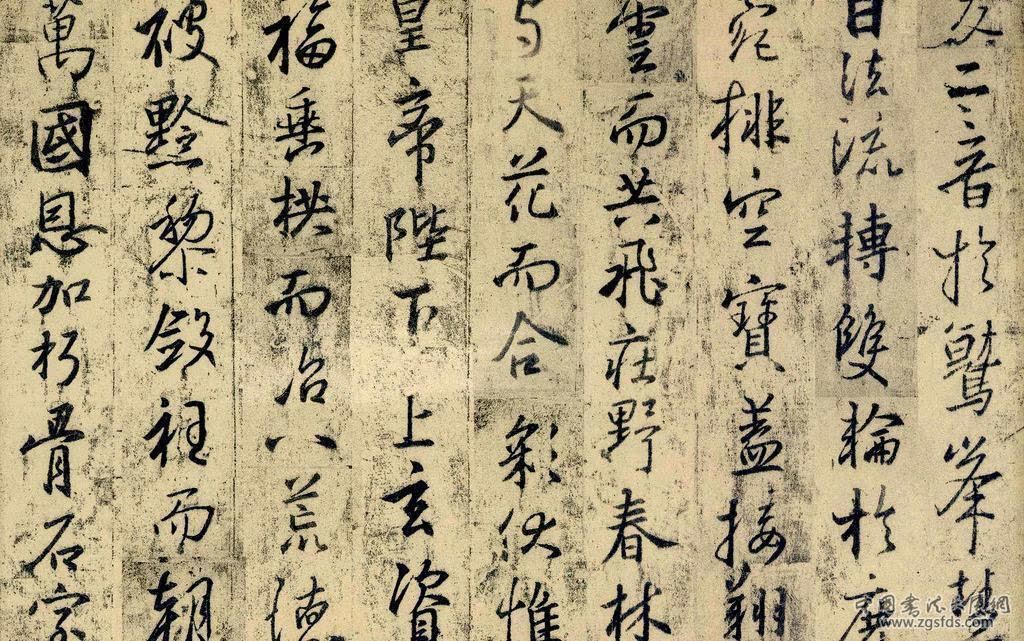 交二音於鷲峯慧
日法流轉雙輪於鹿
苑排空寶蓋接翔
雲而共飛莊野春林
与天花而合彩伏惟
皇帝陛下上玄資
福垂拱而治八荒德
被黔黎斂衽而朝
萬國恩加朽骨石室
www.zgsfds.com